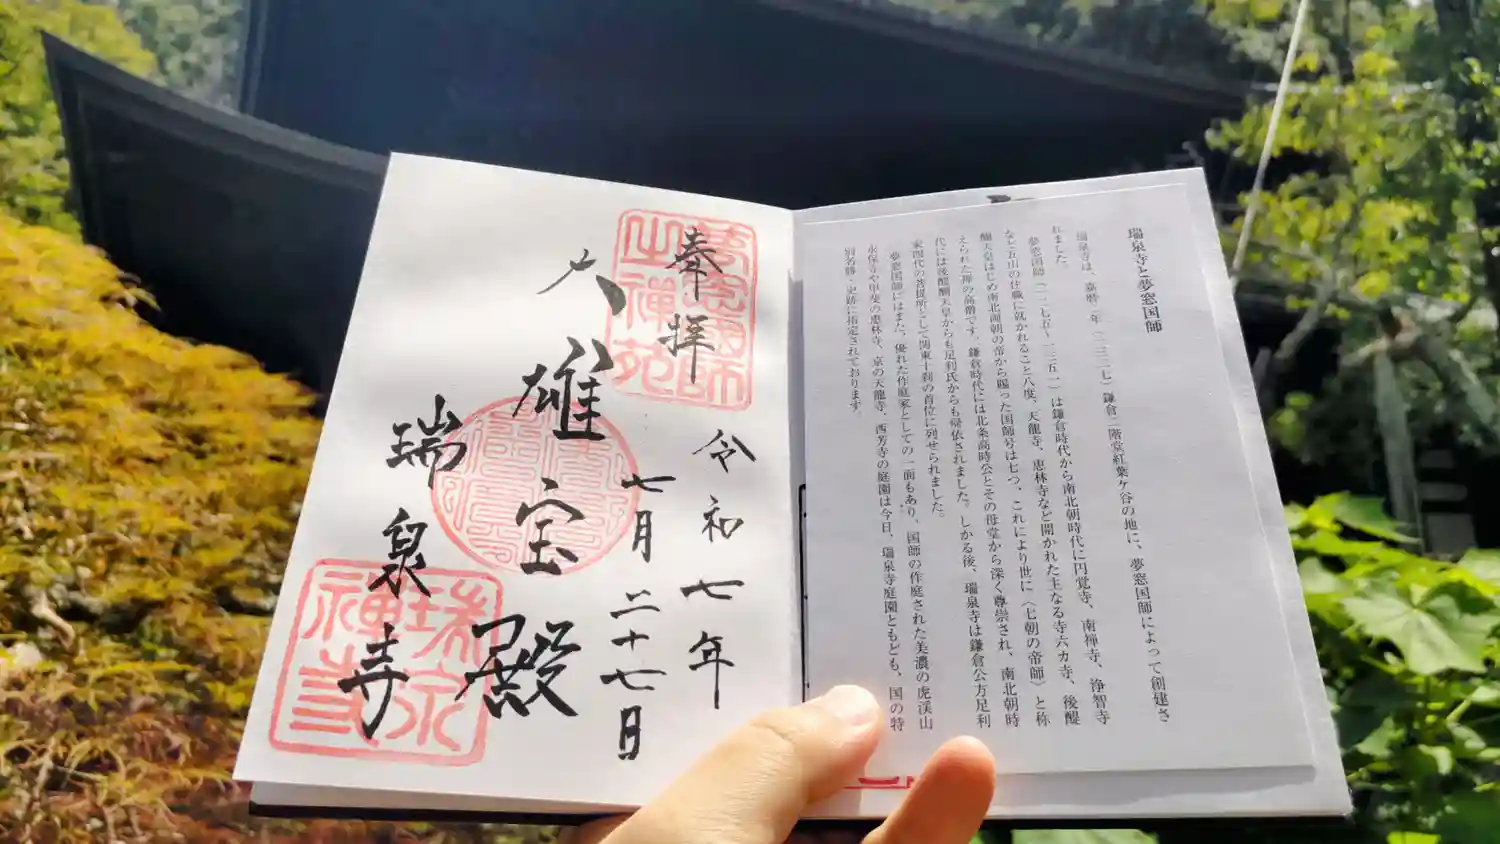 瑞泉寺と夢窓国師
瑞泉寺は、嘉暦二年（一三二七）鎌倉二階堂紅葉ケ谷の地に、夢窓国師によって創建さ
れました。
夢窓国師（一二七五〜一三五一）は鎌倉時代から南北朝時代に円覚寺、南禅寺、浄智寺
など五山の住職に就かれること八度、天龍寺、恵林寺など開かれた主なる寺六カ寺、後醍
醐天皇はじめ南北両朝の帝から賜った国師号は七つ、これにより世に〈七朝の帝師〉と称
えられた禅の高僧です。鎌倉時代には北条高時公とその母堂から深く尊崇され、南北朝時
代には後醍醐天皇からも足利氏からも帰依されました。しかる後、瑞泉寺は鎌倉公方足利
家四代の菩提所として関東十刹の首位に列せられました。
夢窓国師にはまた、優れた作庭家としての一面もあり、国師の作庭された美濃の虎渓山
永保寺や甲斐の恵林寺、京の天龍寺、西芳寺の庭園は今日、瑞泉寺庭園ともども、国の特
別名勝・史跡に指定されております。
奉拝
令和七年
七月二十七日
大雄宝殿
瑞泉寺